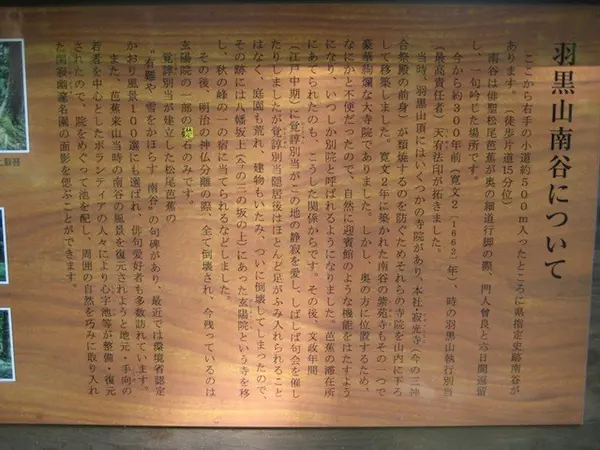 羽黒山南谷について
ここから右手の小道約500m入ったところに県指定史跡南谷が
あります。(徒歩片道15分位)
南谷は俳聖松尾芭蕉が奥の細道行脚の際、門人曾良と六日間逗留
し、一句吟じた場所です。
今から約300年前(寛文2[1662]年)、時の羽黒山執行別当
(最高責任者)天宥法印が拓きました。
当時、羽黒山頂にはいくつかの寺院があり、本社・寂光寺(今の三神
合祭殿の前身)が類焼するのを防ぐためそれらの寺院を山内に下ろ
して移築しました。寛文2年に築かれた南谷の紫苑寺もその一つで
豪華絢爛な大寺院でありました。しかし、奥の方に位置するため、
なにかと不便だったので、自然に迎賓館のような機能をはたすよう
になり、いつしか別院と呼ばれるようになりました。芭蕉の滞在所
にあてられたのも、こうした関係からです。その後、文政年間
(江戸中期)に覚諄別当がこの地の静寂を愛し、しばしば句会を催し
たりしましたが覚諄別当隠居後はほとんど足がふみ入れられること
はなく、庭園も荒れ、建物もいたみ、ついに倒壊してしまったので、
その跡には八幡坂上(今の三の坂の上)にあった玄陽院という寺を移
し、秋の峰の一の宿に当てられるなどしました。
その後、明治の神仏分離の際、全て倒壊され、今残っているのは
玄陽院の一部の礎石のみです。
覚諄別当が建立した松尾芭蕉の
"有難や 雪をかほらす 南谷"の句碑があり、最近では環境省認定
かおり風景100選にも選ばれ、俳句愛好者も多数訪れています。
また、芭蕉来山当時の南谷の風景を復元されようと地元・手向の
若者を中心としたボランティアの人々により心字池等が整備・復元
されたので、院をめぐって池を配し、周囲の自然を巧みに取り入れ
た閑寂幽邃名園の面影を偲ぶことができます。